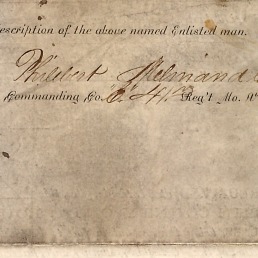 escription of the above named Enlisted man.
Philebert
Commanding Co. G. 41st Reg't Mo.